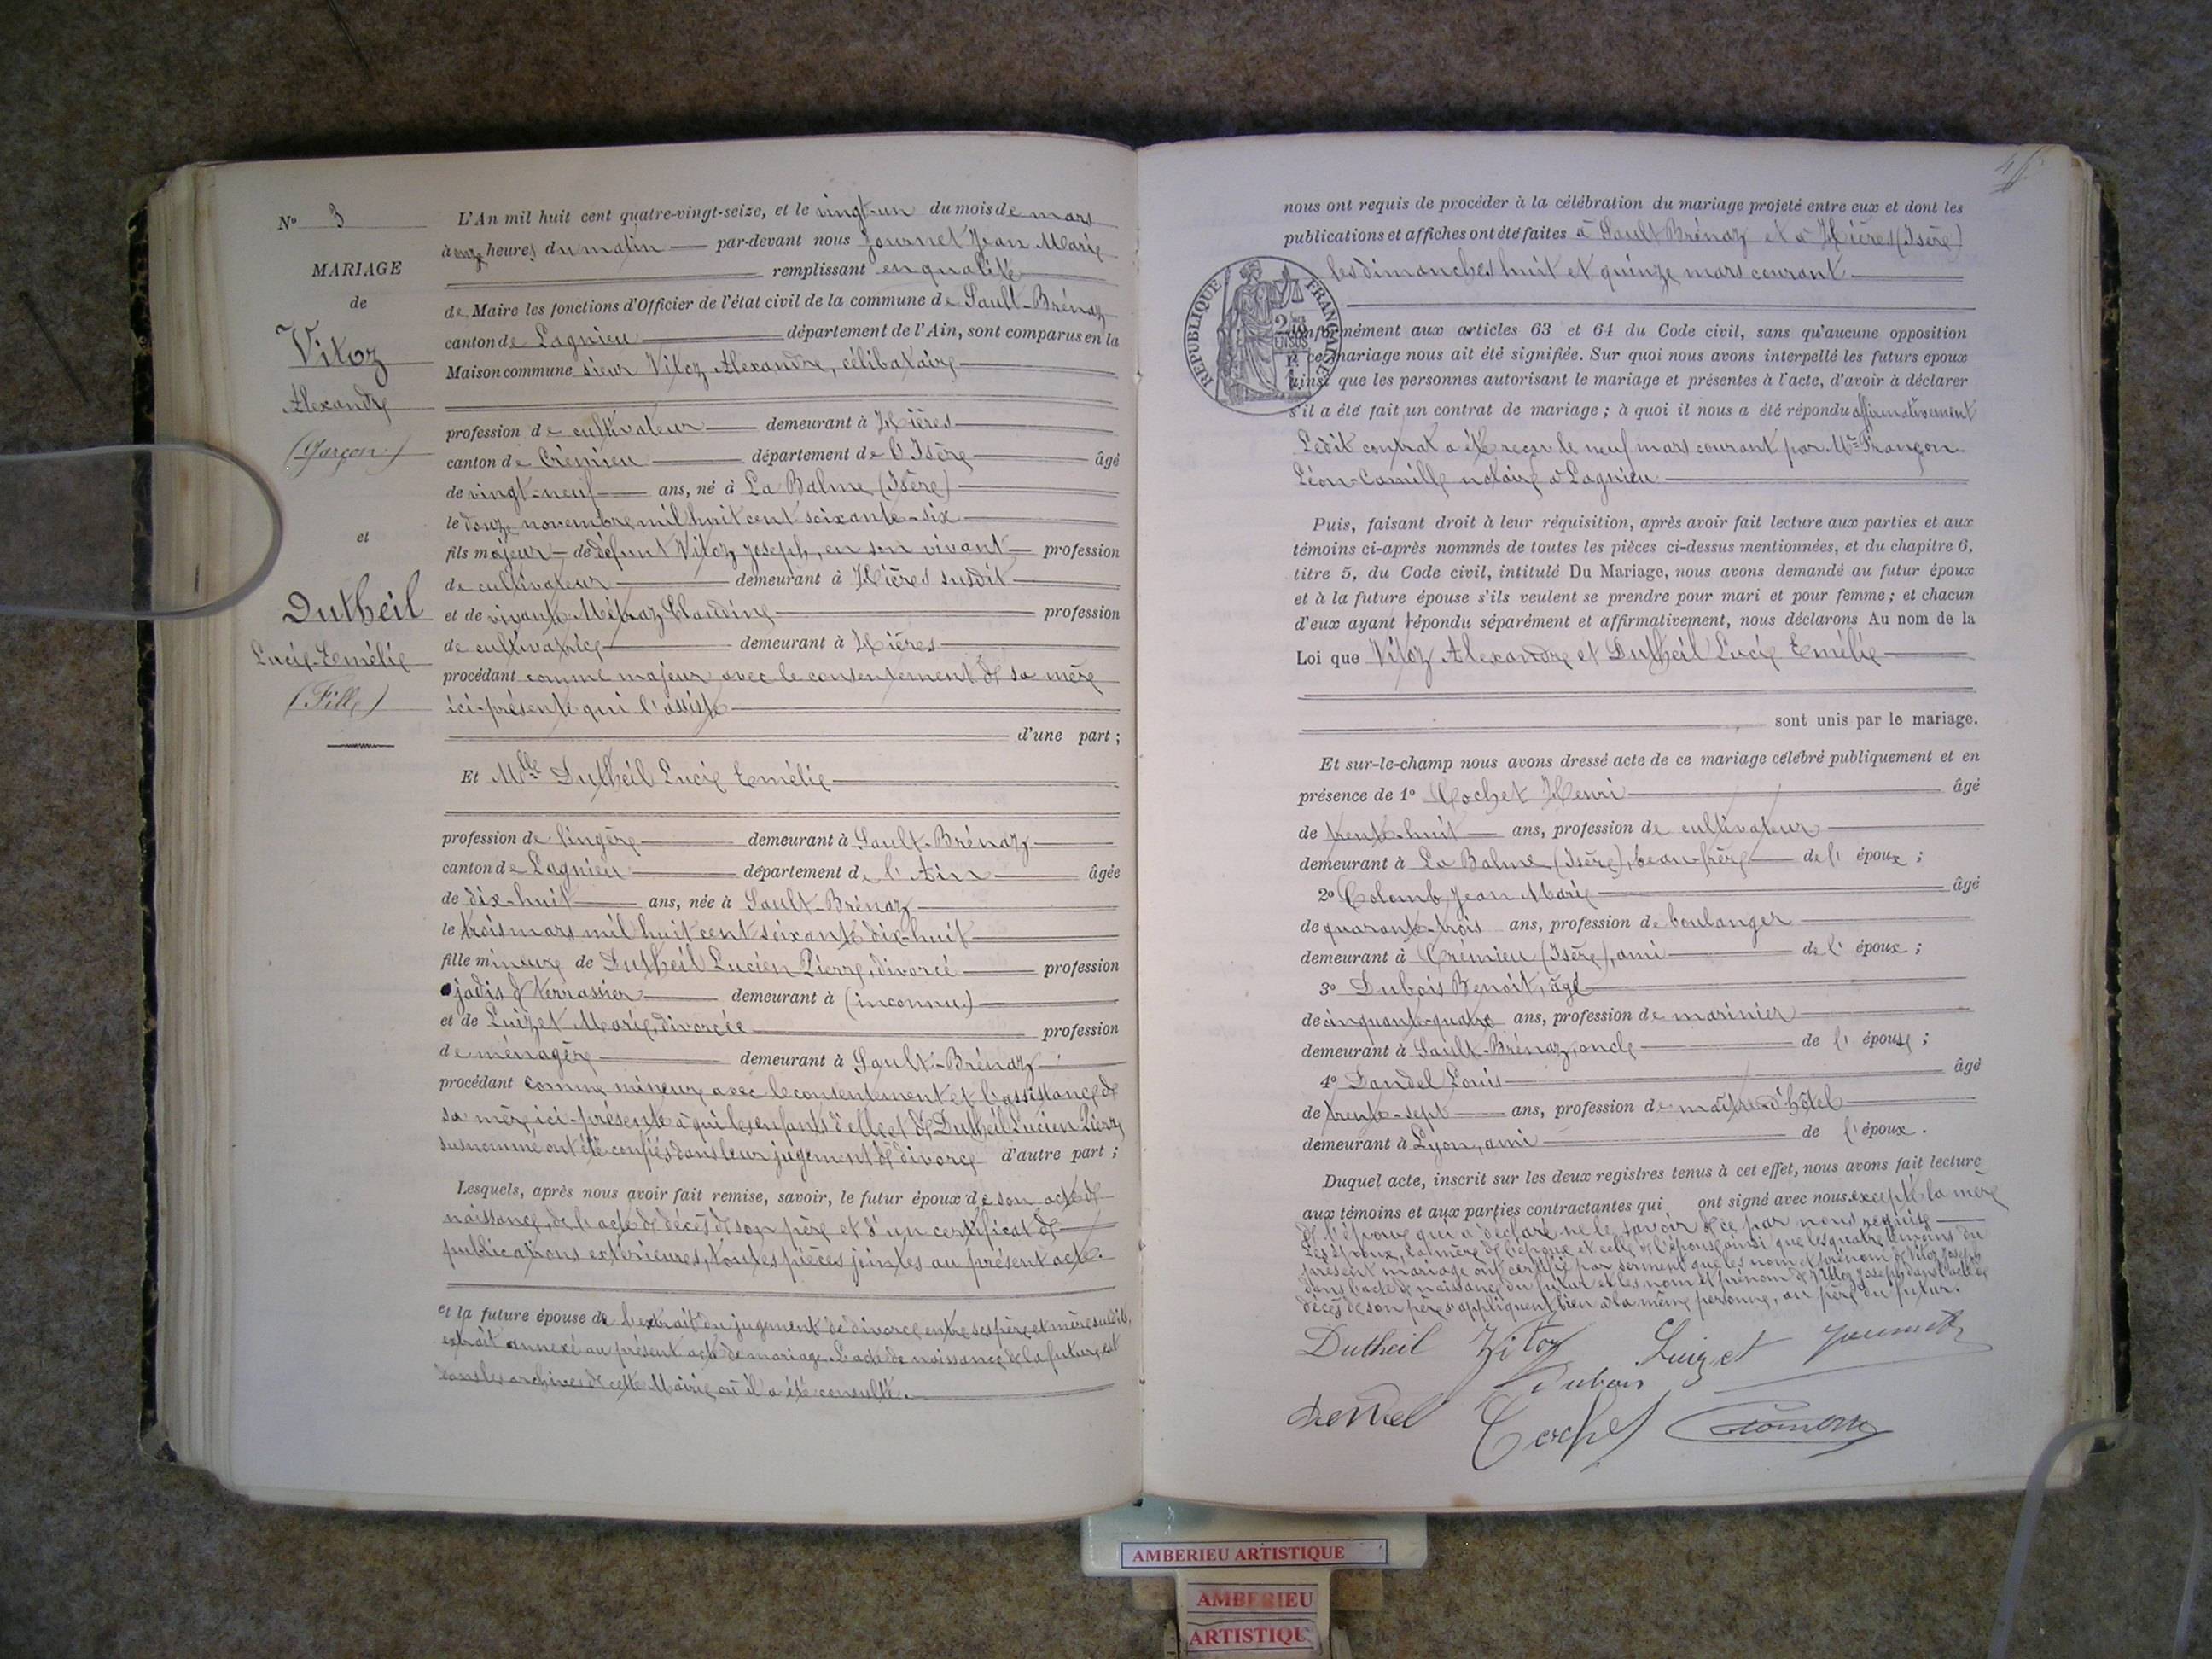 N° 3
MARIAGE
de
Vitoz
Alexandre
(Garçon)
et
Dutheil
Lucie-Emélie
(Fille)
L'An mil huit cent quatre-vingt-seize, et le vingt-un du mois de mars
à onze heures du matin par-devant nous Journet Jean Marie
remplissant en qualité
de Maire les fonctions d'Officier de l'état civil de la commune de Sault-Brénaz
canton de Lagnieu département de l'Ain, sont comparus en la
Maison commune sieur Vitoz Alexandre, célibataire
profession de cultivateur demeurant à Hières
canton de Crémieu département de l'Isère âgé
de vingt-neuf ans, né à La Balme (Isère)
le douze novembre mil huit cent soixante-six
fils majeur de défunt Vitoz Joseph, en son vivant profession
de cultivateur demeurant à Hières susdit
et de vivante Métraz Claudine profession
de cultivatrice demeurant à Hières
procédant comme majeur avec le consentement de sa mère
ici-présente qui l'assiste
d'une part ;
Et Mlle Dutheil Lucie Emélie
profession de lingère demeurant à Sault-Brénaz
canton de Lagnieu département de l'Ain âgée
de dix-huit ans, née à Sault-Brénaz
le trois mars mil huit cent soixante dix-huit
fille mineure de Dutheil Lucien Pierre, divorcé profession
jadis de terrassier demeurant à (inconnu)
et de Luizet Marie, divorcée profession
de ménagère demeurant à Sault-Brénaz
procédant comme mineure avec le consentement et l'assistance de
sa mère ici-présente à qui les enfants d'elle et de Dutheil Lucien Pierre
susnommé ont été confiés dans leur jugement de divorce d'autre part ;
Lesquels, après nous avoir fait remise, savoir, le futur époux de son acte de
naissance, de l'acte de décès de son père et d'un certificat de
publications extérieures, toutes pièces jointes au présent acte.
et la future épouse de l'extrait du jugement de divorce entre ses père et mère susdits,
extrait annexé au présent acte de mariage. L'acte de naissance de la future est
dans les archives de cette Mairie où il a été consulté.
nous ont requis de procéder à la célébration du mariage projeté entre eux et dont les
publications et affiches ont été faites à Sault-Brénaz et à Hières (Isère)
les dimanches huit et quinze mars courant
REPUBLIQUE FRANÇAISE
conformément aux articles 63 et 64 du Code civil, sans qu'aucune opposition
à ce mariage nous ait été signifiée. Sur quoi nous avons interpellé les futurs époux
ainsi que les personnes autorisant le mariage et présentes à l'acte, d'avoir à déclarer
s'il a été fait un contrat de mariage ; à quoi il nous a été répondu affirmativement
Ledit contrat a été reçu le neuf mars courant par Me Françon
Léon-Camille notaire à Lagnieu
Puis, faisant droit à leur réquisition, après avoir fait lecture aux parties et aux
témoins ci-après nommés de toutes les pièces ci-dessus mentionnées, et du chapitre 6,
titre 5, du Code civil, intitulé Du Mariage, nous avons demandé au futur époux
et à la future épouse s'ils veulent se prendre pour mari et pour femme ; et chacun
d'eux ayant répondu séparément et affirmativement, nous déclarons Au nom de la
Loi que Vitoz Alexandre et Dutheil Lucie Emélie
sont unis par le mariage.
Et sur-le-champ nous avons dressé acte de ce mariage célébré publiquement et en
présence de 1° Cochet Henri âgé
de trente-huit ans, profession de cultivateur
demeurant à La Balme (Isère), beau-frère de l'époux ;
2° Colomb Jean Marie âgé
de quarante-trois ans, profession de boulanger
demeurant à Crémieu (Isère), ami de l'époux ;
3° Dubois Benoit, âgé
de cinquante-quatre ans, profession de marinier
demeurant à Sault-Brénaz, oncle de l'épouse ;
4° Dandel Louis âgé
de trente-sept ans, profession de maître d'hôtel
demeurant à Lyon, ami de l'époux.
Duquel acte, inscrit sur les deux registres tenus à cet effet, nous avons fait lecture
aux témoins et aux parties contractantes qui ont signé avec nous excepté la mère
de l'époux qui a déclaré ne le savoir de ce par nous requise
Les époux, la mère de l'époux et celle de l'épouse ainsi que les quatre témoins du
présent mariage ont certifié par serment que les nom et prénom de Vitoz Joseph
dans l'acte de naissance du futur et les nom et prénom de Vitoz Joseph dans l'acte de
décès de son père s'appliquent bien à la même personne, au père du futur.
Dutheil Vitoz Luizet Journet
Dubois
Dandel Cochet
AMBERIEU ARTISTIQUE
AMBERIEU
ARTISTIQU